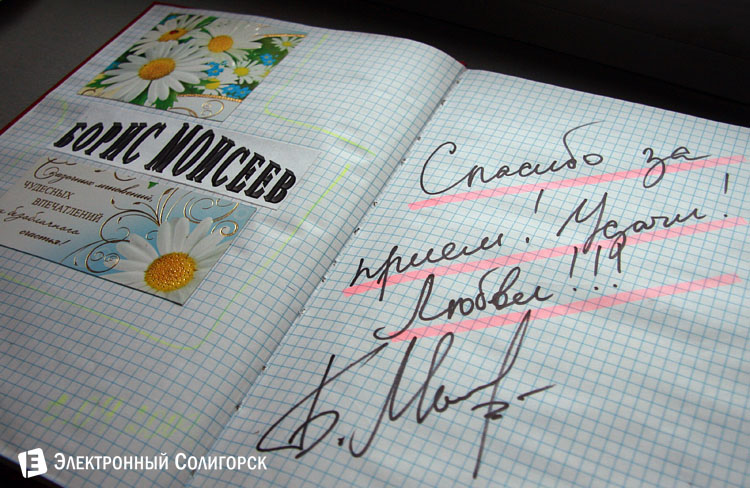 БОРИС МОИСЕЕВ
Сказочных мгновений,
ЧУДЕСНЫХ
ВПЕЧАТЛЕНИЙ
и безоблачного
счастья!
Спасибо за
прием! Удачи!
Любви!!!
Б. Мои
Электронный Солигорск